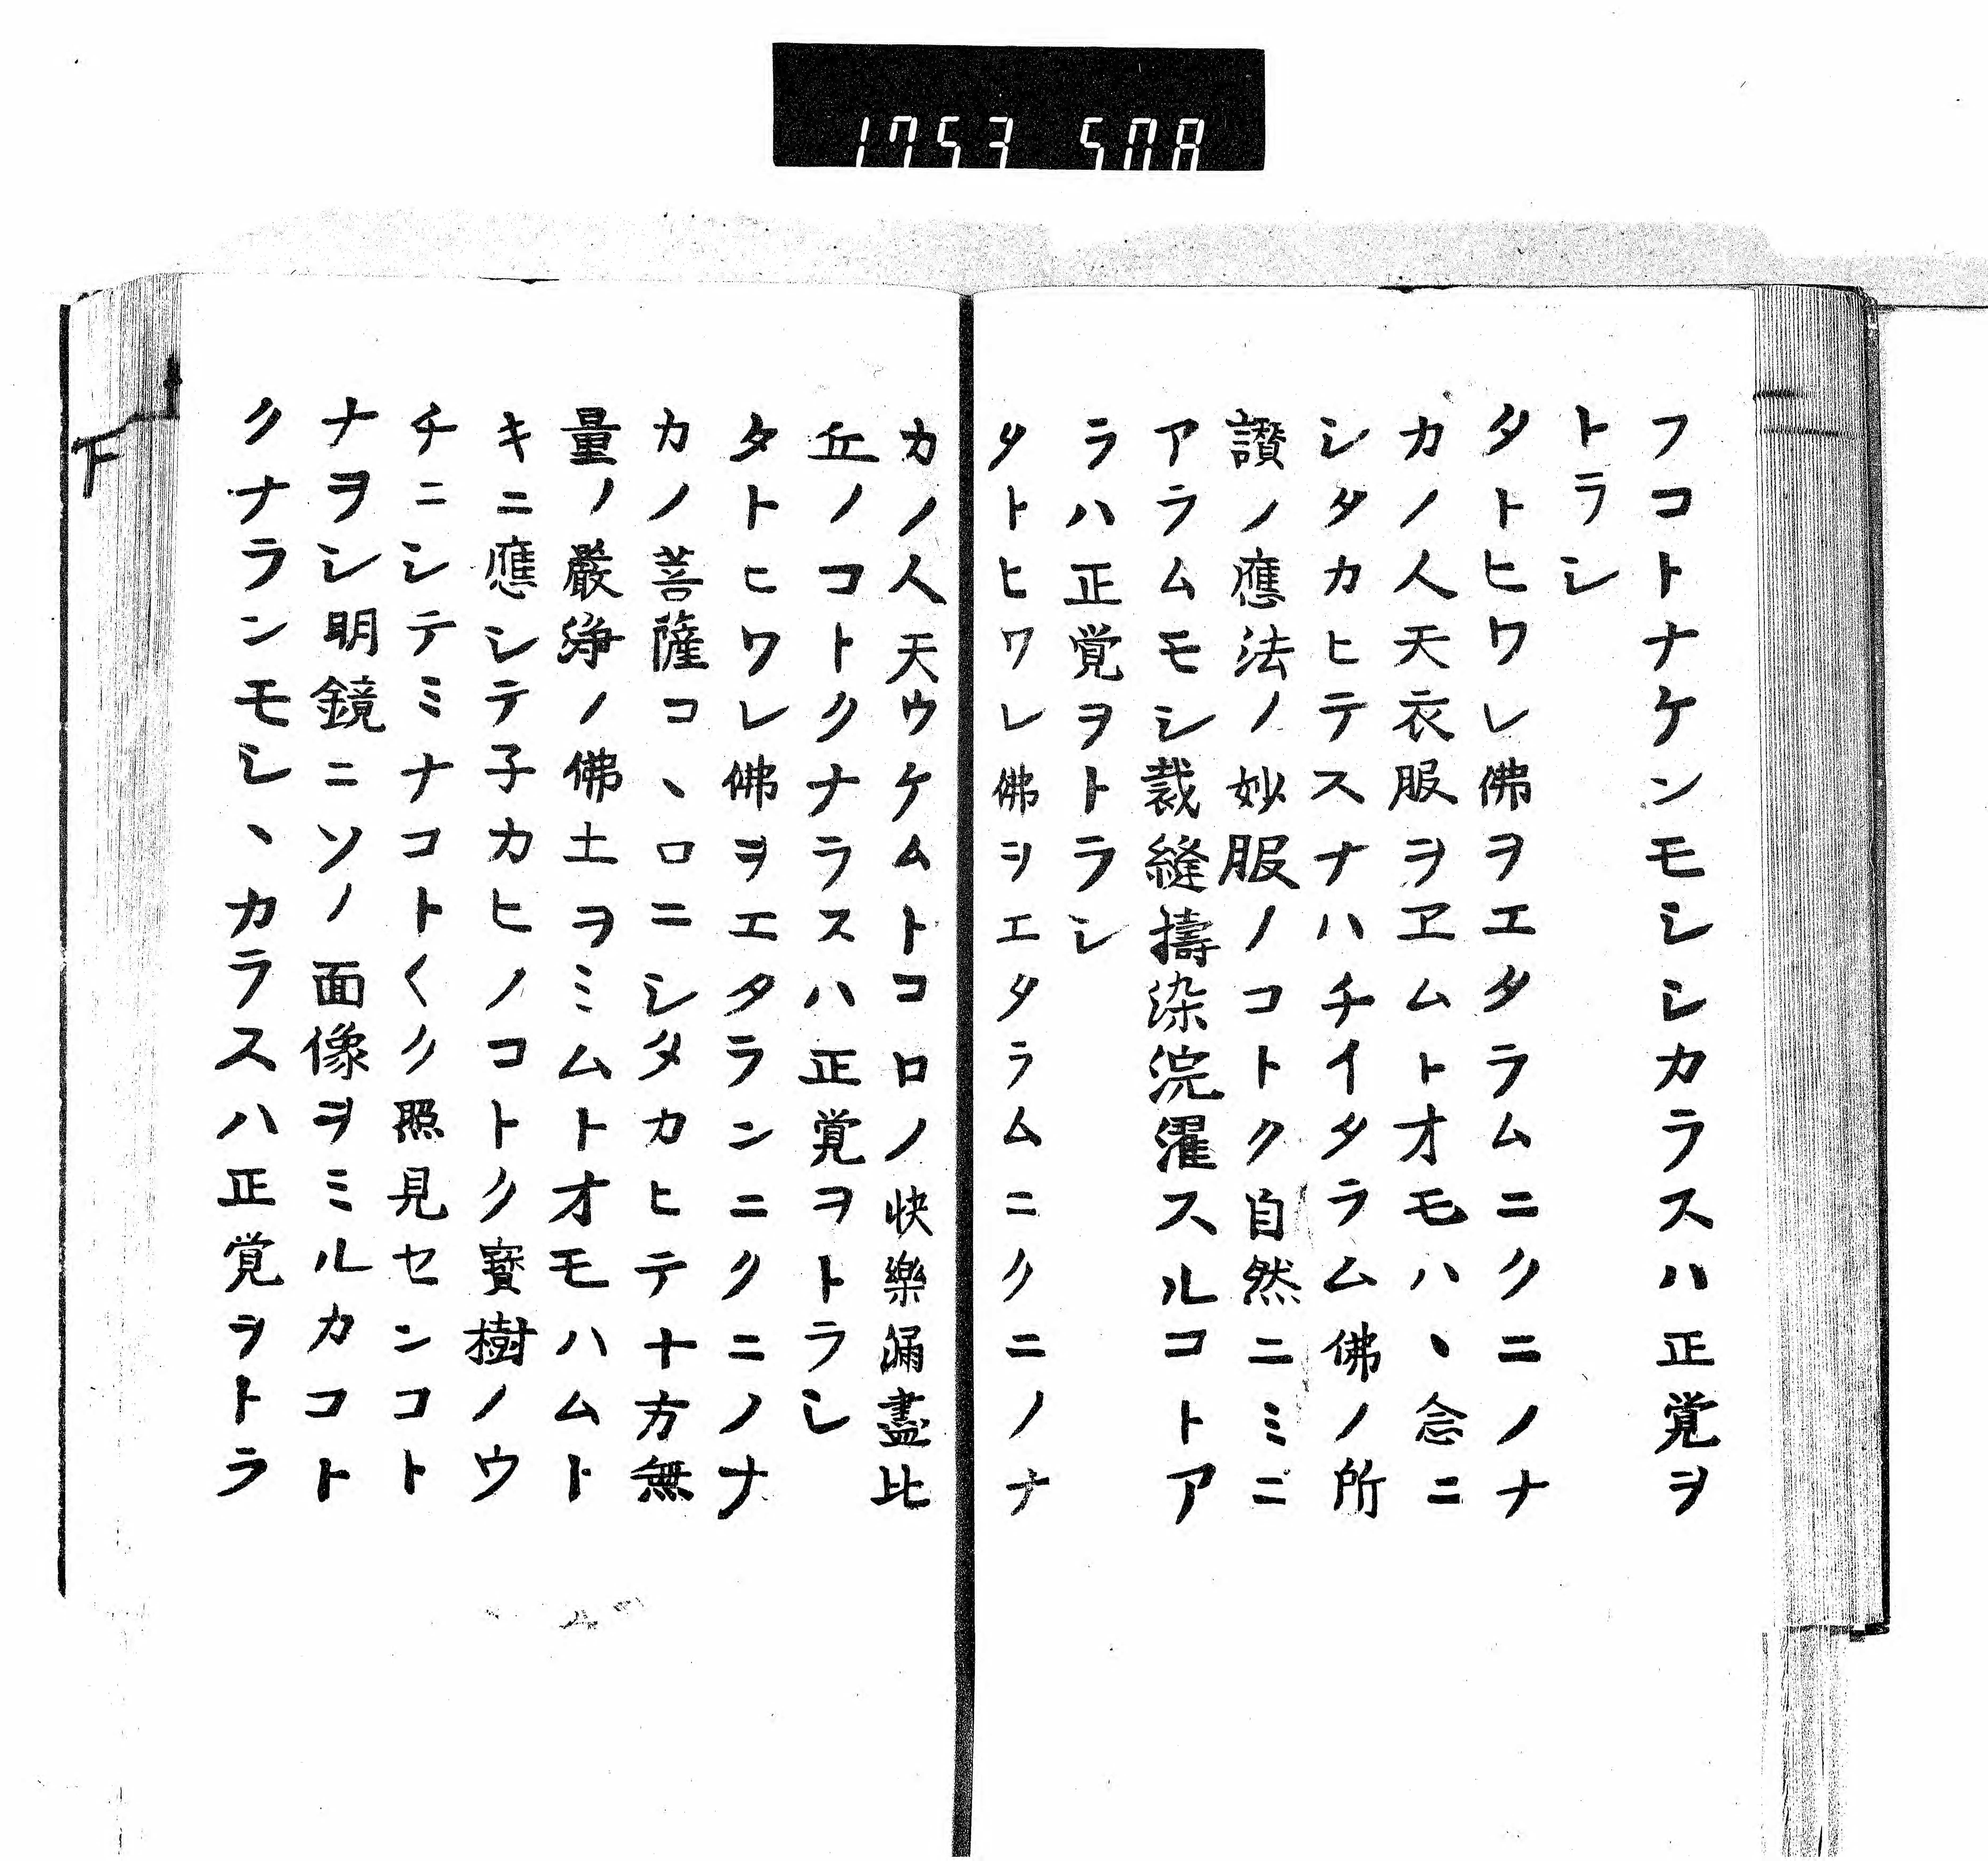 1753 508
フコトナケンモシシカラスハ正覚ヲ
トラシ
タトヒワレ佛ヲエタラムニクニノナ
カノ人天衣服ヲヱムトオモハヽ念ニ
シタカヒテスナハチイタラム佛ノ所
讃ノ應法ノ妙服ノコトク自然ニミニ
アラムモシ裁縫擣染浣濯スルコトア
ラハ正覚ヲトラシ
タトヒワレ佛ヲエタラムニクニノナ
カノ人天ウケムトコロノ快樂漏盡比
丘ノコトクナラスハ正覚ヲトラシ
タトヒワレ佛ヲエタランニクニノナ
カノ菩薩コヽロニシタカヒテ十方無
量ノ嚴淨ノ佛土ヲミムトオモハムト
キニ應シテ子カヒノコトク寳樹ノウ
チニシテミナコト〱ク照見センコト
ナヲシ明鏡ニソノ面像ヲミルカコト
クナランモシヽカラスハ正覚ヲトラ
下